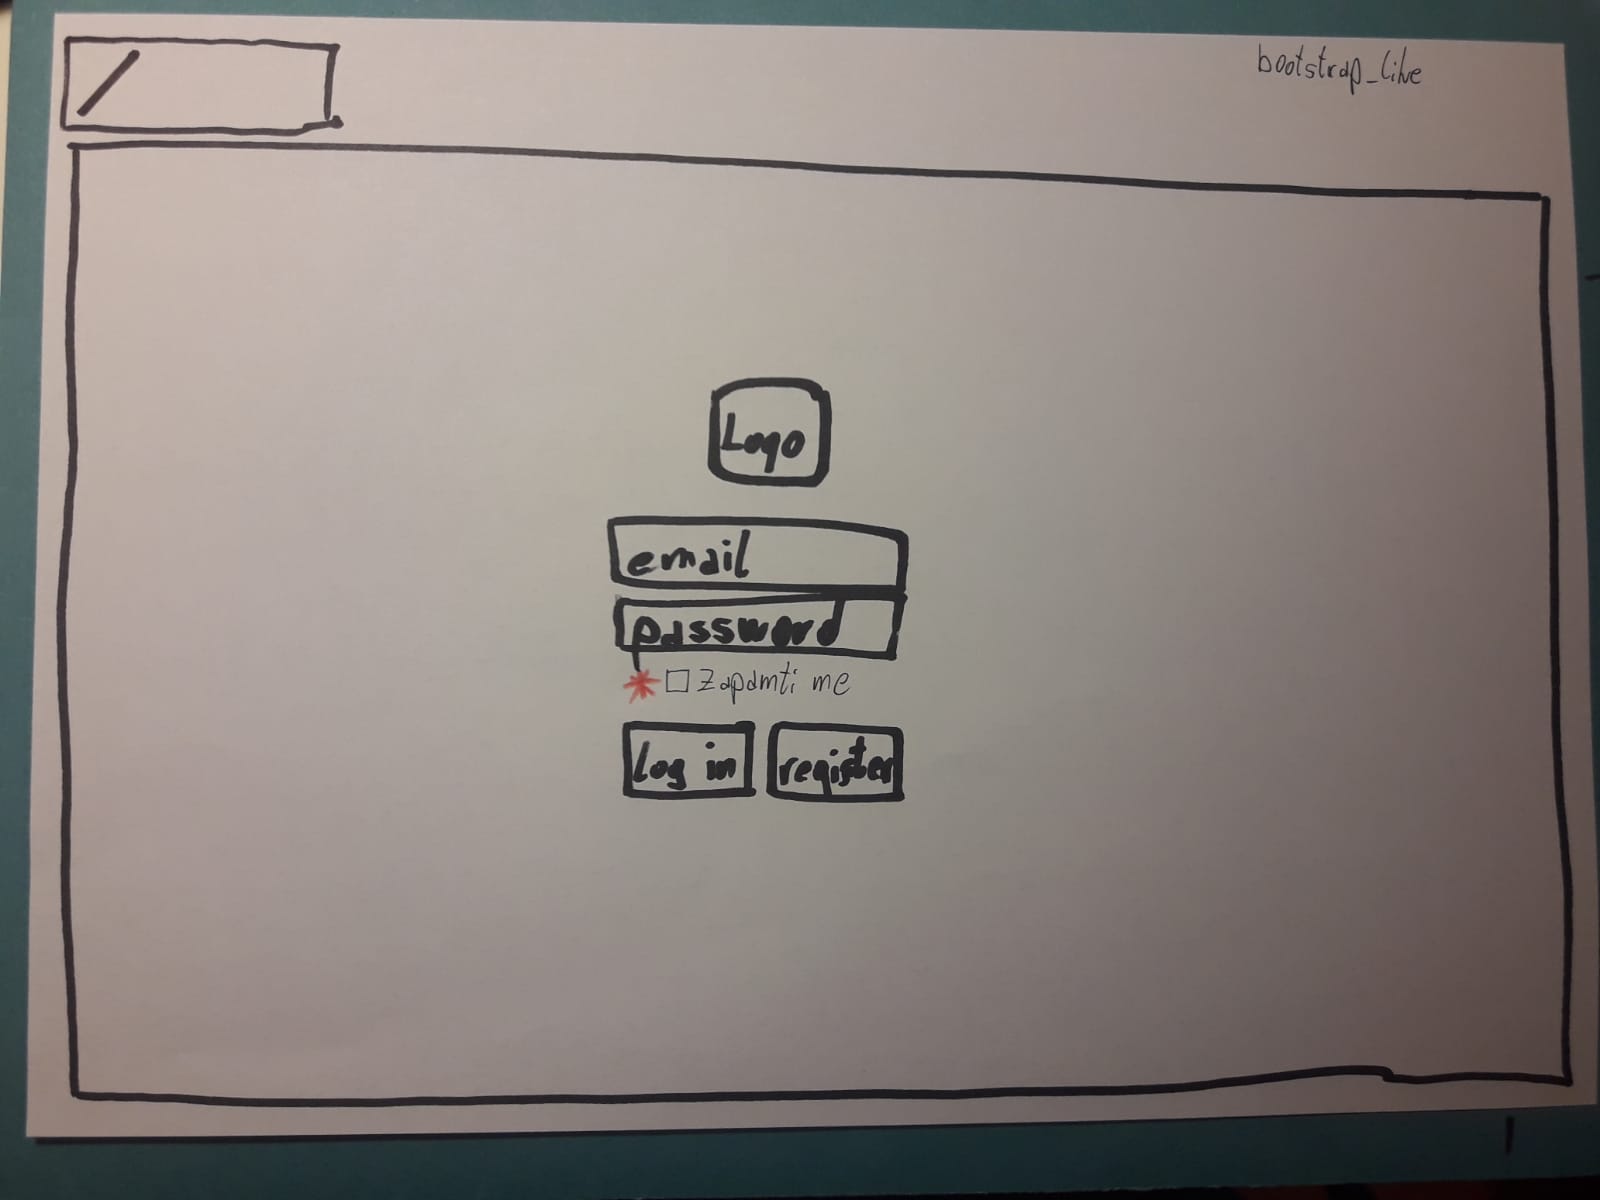 /
bootstrap_like
Logo
email
password
* Zapamti me
Log in
register